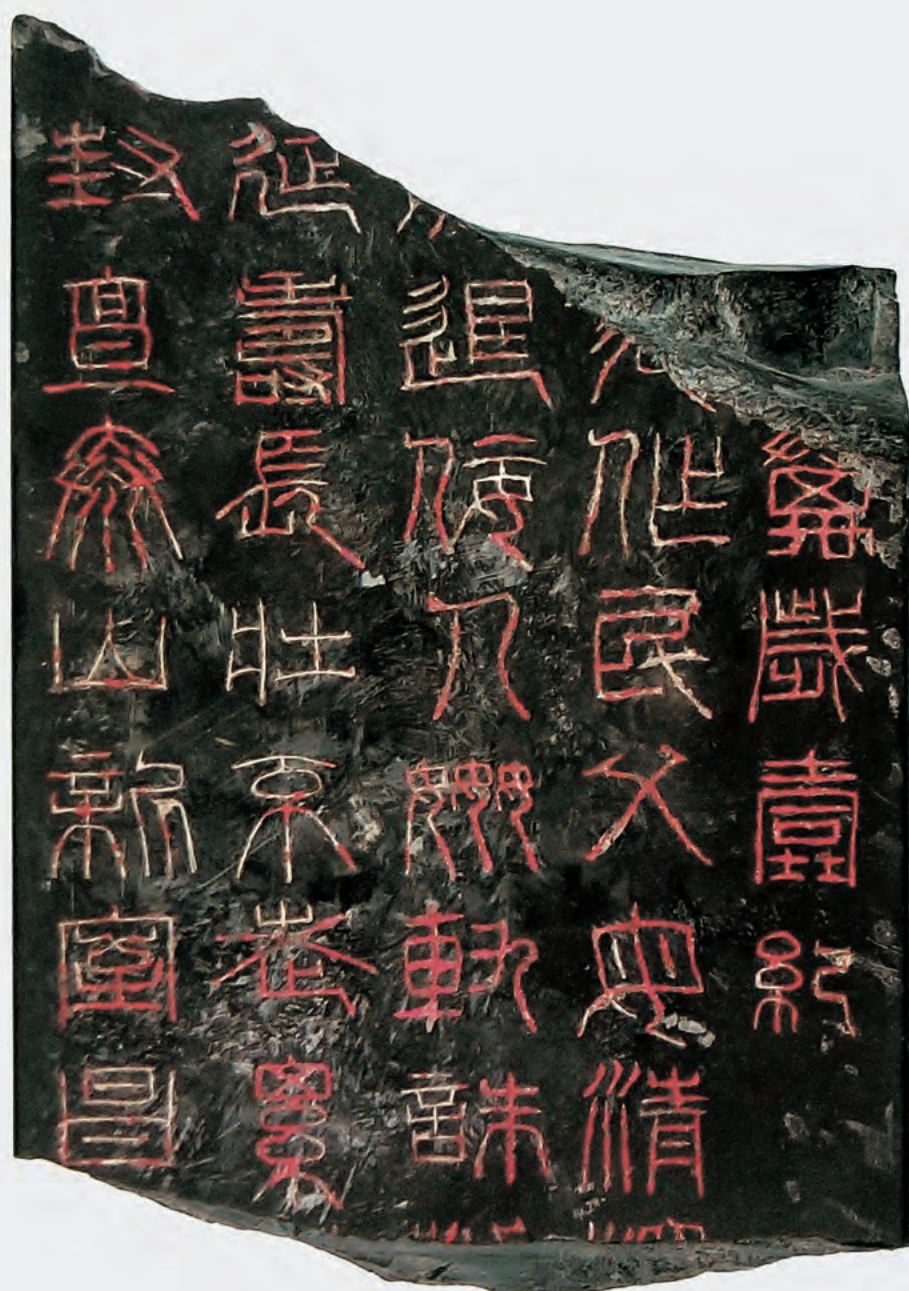 萬歲壹紀
作民父母清
退佞人姦軌誅
延壽長壯不老累
封亶泰山新室昌